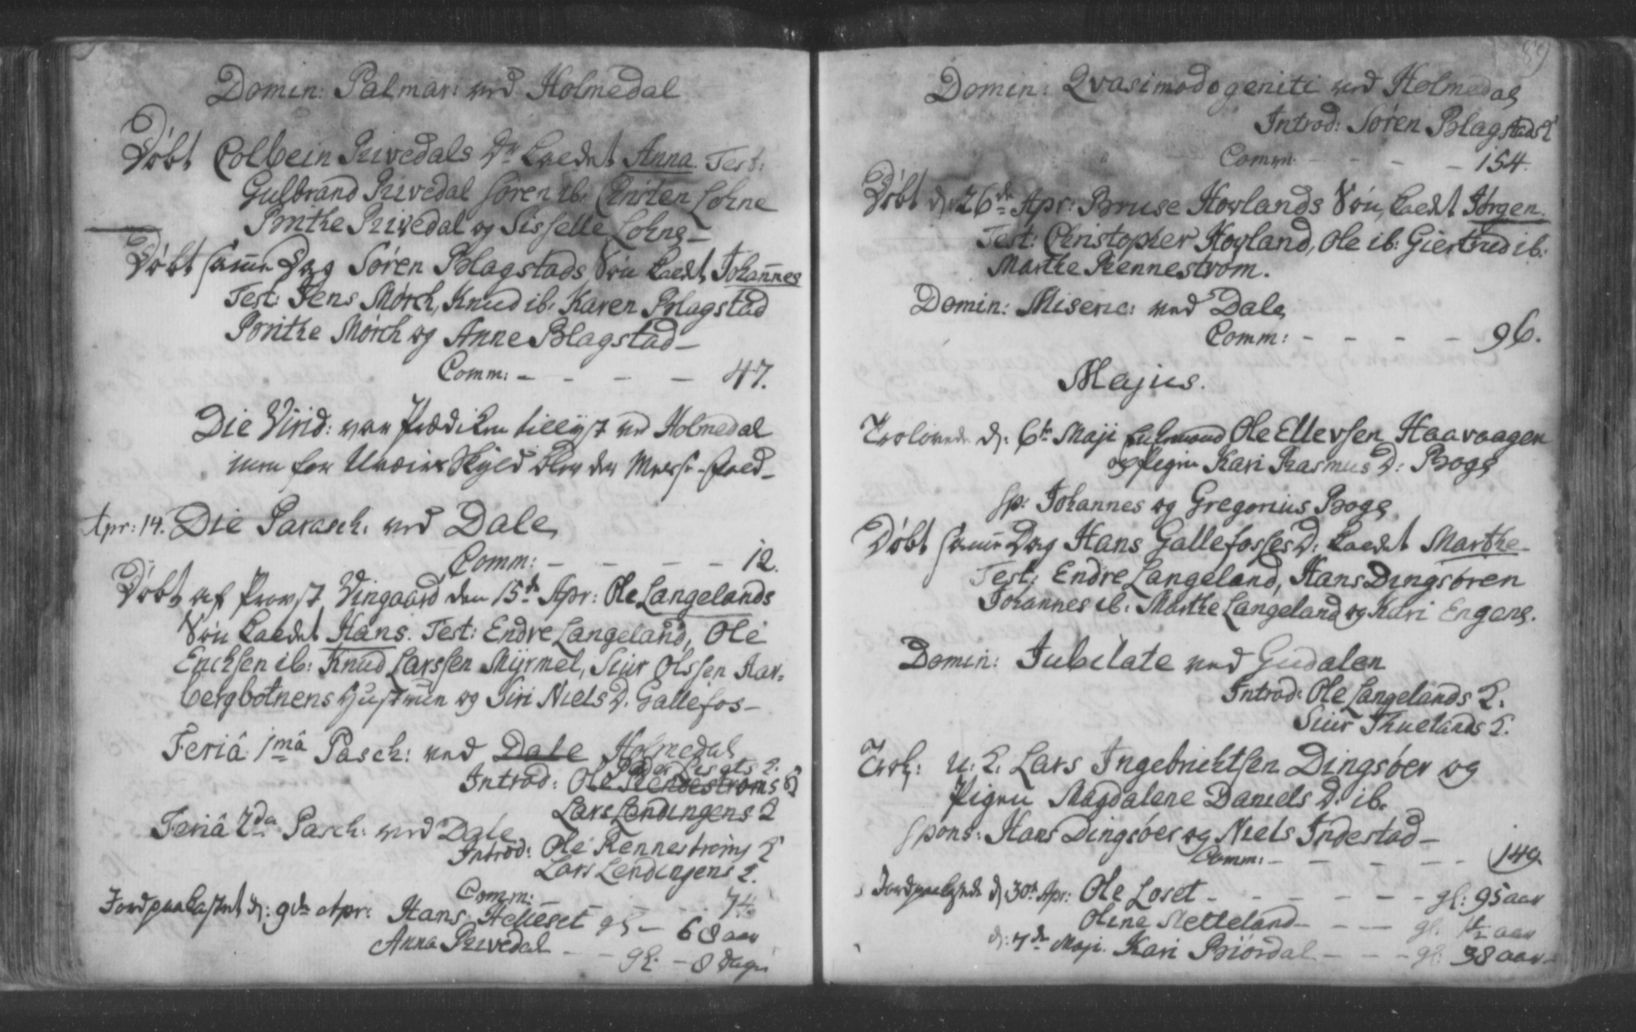 Domin: Palmar: ved Holmedal
Døbt Colbein Rivedals Dr kaldet Anna. Test:
Gulbrand Rivedal Søren ib: Christen Lohne
Brithe Rivedal og Sisselle Lohne
Døbt samme Dag Søren Blagstads Søn kaldet Johannes
Test: Jens Mørch, Knud ib: Karen Blagstad
Brithe Mørch og Anne Blagstad
Comm: - - - - 47.
Die Virid: var Prædiken tillyst ved Holmedal
men for Uveirs Skyld blev der Messe-fald
Apr: 14. Die Parasch: ved Dale
Comm: - - - - 12.
Døbt af Provst Wingaard den 15de Apr: Ole Langelands
Søn kaldet Hans. Test: Endre Langeland, Ole
Erichsen ib: Knud Larssen Myrmel, Siur Olssen Aar-
bergbotnens Hustrue og Siri Niels D. Gallefos
Feriâ 1mâ Pasch: ved Dale Holmedal
Introd: Ole Rennestrøms
Lars Lendingens
Feriâ 2da Pasch: ved Dale
Introd: Ole Rennestrøms
Lars Lendingens
Comm: - - - 74
Jordpaakastet d: 9de Apr: Hans Helleset gl - 68 aar
Anna Rivedal - - gl: - 8 dage
89
Domin: Qvasimodogeniti ved Holmedal
Introd: Søren Blagstads
Comm: - - - - 154.
Døbt d: 26de Apr: Bruse Hovlands Søn, kaldet Jørgen
Test: Christopher Hovland, Ole ib: Giertrud ib:
Marthe Rennestrøm.
Domin: Miseric: ved Dale
Comm: - - - - 96.
Majus.
Trolovede d: 6te Maji Ole Ellevsen Haavaagen
og Pigen Kari Rasmus D: Boge
sp: Johannes og Gregorius Boge
Døbt samme Dag Hans Gallefosses D: kaldet Marthe
Test: Endre Langeland, Hans Dingsøren
Johannes ib: Marthe Langeland og Kari Engene.
Domin: Jubilate ved Gudalen
Introd: Ole Langelands
Siur Thuelands
Trol: Lars Ingebrichtsen Dingsøer og
Pigen Magdalene Daniels D: ib.
spons: Hans Dingsøer og Niels Indestad
Comm: - - - - 149
Jordpaakastede d: 30te Apr: Ole Loset - - - - gl: 95 aar
Oline Netteland - - - gl: 1½ aar
d: 7de Maji. Kari Biordal - - - gl: 38 aar